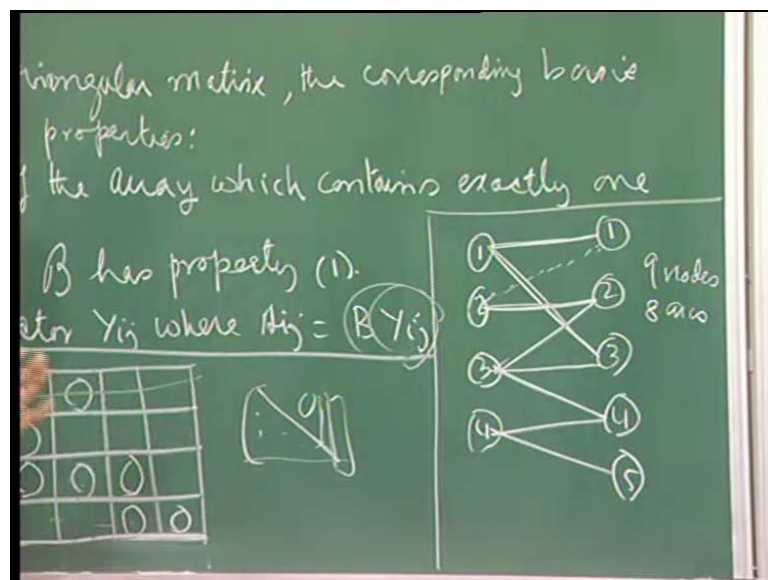 triangular matrix, the corresponding basic
properties:
the array which contains exactly one
B has property (1).
Yij where Aij = B Yij
1 1
2 2
3 3
4 4
5
9 nodes
8 arcs
0